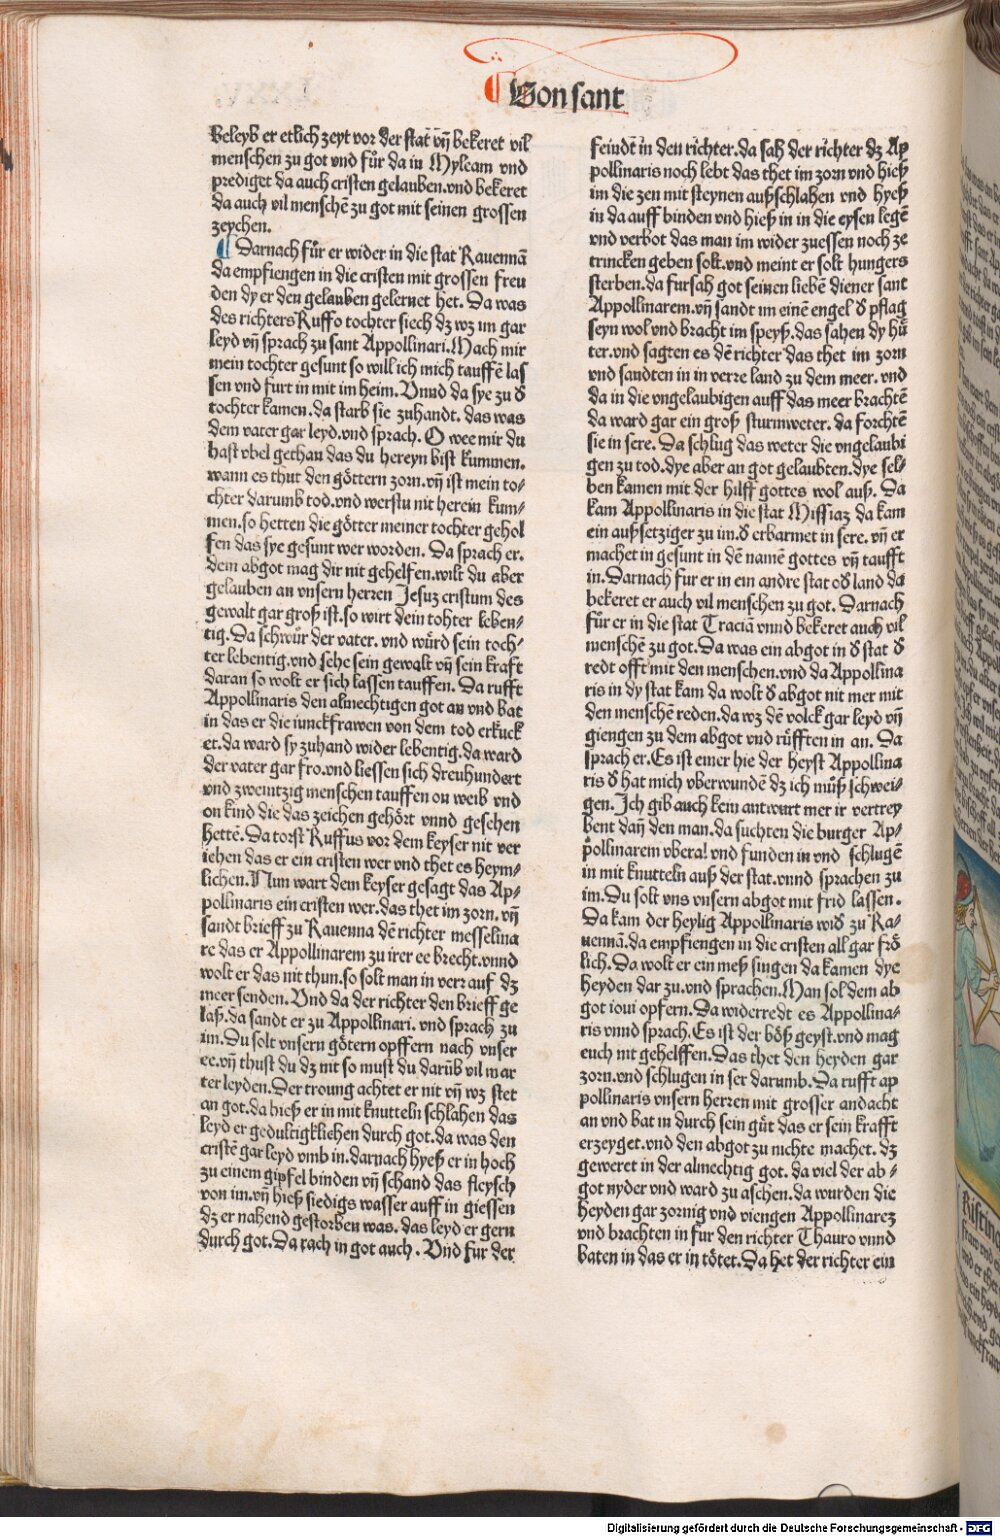 Von sant
Beleyb er etlich zeyt vor der stat vn̄ bekeret vil
menschen zu got vnd fůr da in Myleam vnd
prediget da auch cristen gelauben. vnd bekeret
da auch vil menschē zu got mit seinen grossen
zeychen.
¶ Darnach fůr er wider in die stat Rauennā
da empfiengen in die cristen mit grossen freu
den dy er den gelauben gelernet het. Da was
des richters Ruffo tochter siech dz wz im gar
leyd vn̄ sprach zu sant Appollinari. Mach mir
mein tochter gesunt so will ich mich tauffē las
sen vnd furt in mit im heim. Vnnd da sye zu d
tochter kamen. da starb sie zuhandt. das was
dem vater gar leyd. vnd sprach. O wee mir du
hast vbel gethan das du hereyn bist kummen.
wann es thut den göttern zorn. vn̄ ist mein to-
chter darumb tod. vnd werstu nit herein kum-
men. so hetten die götter meiner tochter gehol
fen das sye gesunt wer worden. Da sprach er.
dem abgot mag dir nit gehelfen. wilt du aber
gelauben an vnsern herren Jesuz cristum des
gewalt gar groß ist. so wirt dein tohter leben-
tig. Da schwůr der vater. vnd wůrd sein toch-
ter lebentig. vnd sehe sein gewalt vn̄ sein kraft
daran so wolt er sich lassen tauffen. Da rufft
Appollinaris den almechtigen got an vnd bat
in das er die iunckfrawen von dem tod erkuck
et. da ward sy zuhand wider lebentig. da ward
der vater gar fro. vnd liessen sich dreuhundert
vnd zweintzig menschen tauffen on weib vnd
on kind die das zeichen gehört vnnd gesehen
hettē. Da torst Ruffus vor dem keyser nit ver
iehen das er ein cristen wer vnd thet es heym-
lichen. Nun wart dem keyser gesagt das Ap-
pollinaris ein cristen wer. das thet im zorn. vn̄
sandt brieff zu Rauenna dē richter messelina
re das er Appollinarem zu irer ee brecht. vnnd
wolt er das nit thun. so solt man in verr auf dz
meer senden. Vnd da der richter den brieff ge
laß. da sandt er zu Appollinari. vnd sprach zu
im. Du solt vnsern götern opffern nach vnser
ee. vn̄ thust du dz nit so must du darūb vil mar
ter leyden. Der troung achtet er nit vn̄ wz stet
an got. da hieß er in mit knutteln schlahen das
leyd er gedultigkliehen durch got. da was den
cristē gar leyd vmb in. darnach hyeß er in hoch
zu einem gipfel binden vn̄ schand das fleysch
von im. vn̄ hieß siedigs wasser auff in giessen
dz er nahend gestorben was. das leyd er gern
durch got. Da rach in got auch. Vnd fur der
feindt in den richter. da sah der richter dz Ap
pollinaris noch lebt das thet im zorn vnd hieß
im die zen mit steynen außschlahen vnd hyeß
in da auff binden vnd hieß in in die eysen legē
vnd verbot das man im wider zuessen noch ze
trincken geben solt. vnd meint er solt hungers
sterben. da fursah got seinen liebē diener sant
Appollinarem. vn̄ sandt im einē engel d pflag
seyn wol vnd bracht im speyß. das sahen dy hů
ter. vnd sagten es dē richter das thet im zorn
vnd sandten in in verre land zu dem meer. vnd
da in die vngelaubigen auff das meer brachtē
da ward gar ein groß sturmweter. da forchtē
sie in sere. Da schlug das weter die vngelaubi
gen zu tod. dye aber an got gelaubten. dye sel-
ben kamen mit der hilff gottes wol auß. Da
kam Appollinaris in die stat Missiaz da kam
ein außsetziger zu im. d erbarmet in sere. vn̄ er
machet in gesunt in dē namē gottes vn̄ taufft
in. Darnach fur er in ein andre stat od land da
bekeret er auch vil menschen zu got. Darnach
fůr er in die stat Traciā vnnd bekeret auch vil
menschē zu got. Da was ein abgot in d stat d
redt offt mit den menschen. vnd da Appollina
ris in dy stat kam da wolt d abgot nit mer mit
den menschē reden. da wz dē volck gar leyd vn̄
giengen zu dem abgot vnd růfften in an. Da
sprach er. Es ist einer hie der heyst Appollina
ris d hat mich vberwundē dz ich můß schwei-
gen. Ich gib auch kein antwurt mer ir vertrey
bent dan̄ den man. da suchten die burger Ap-
pollinarem vberal vnd funden in vnd schlugē
in mit knutteln auß der stat. vnnd sprachen zu
im. Du solt vns vnsern abgot mit frid lassen.
Da kam der heylig Appollinaris wid zu Ra-
uennā. da empfiengen in die cristen all gar frö
lich. Da wolt er ein meß singen da kamen dye
heyden dar zu. vnd sprachen. Man sol dem ab
got ioui opfern. Da widerredt es Appollina-
ris vnnd sprach. Es ist der böß geyst. vnd mag
euch nit gehelffen. Das thet den heyden gar
zorn. vnd schlugen in ser darumb. Da rufft ap
pollinaris vnsern herren mit grosser andacht
an vnd bat in durch sein gůt das er sein krafft
erzeyget. vnd den abgot zu nichte machet. dz
geweret in der almechtig got. da viel der ab-
got nyder vnd ward zu aschen. da wurden die
heyden gar zornig vnd viengen Appollinarez
vnd brachten in fur den richter Thauro vnnd
baten in das er in tötet. Da het der richter ein
Digitalisierung gefördert durch die Deutsche Forschungsgemeinschaft - DFG